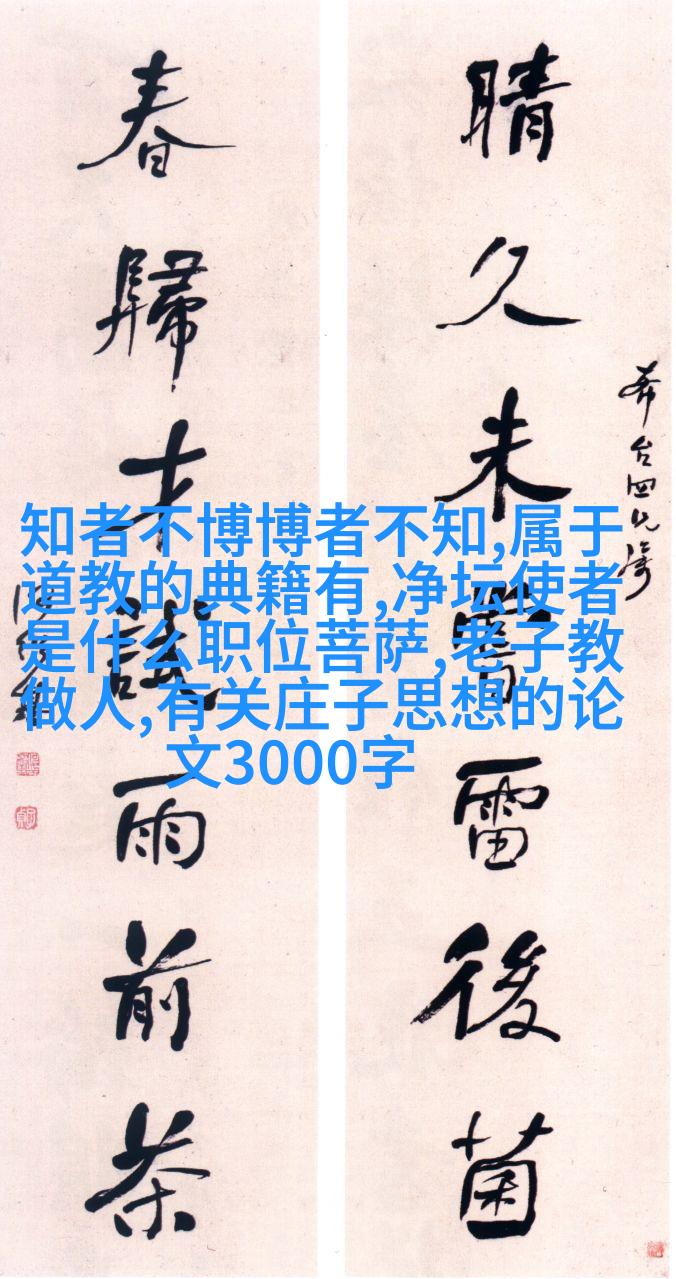 晴久未嘗雷後菌
春歸才試雨前茶
知者不博博者不知,属于
道教的典籍有,净坛使者
是什么职位菩萨,老子教
做人,有关庄子思想的论
文3000字